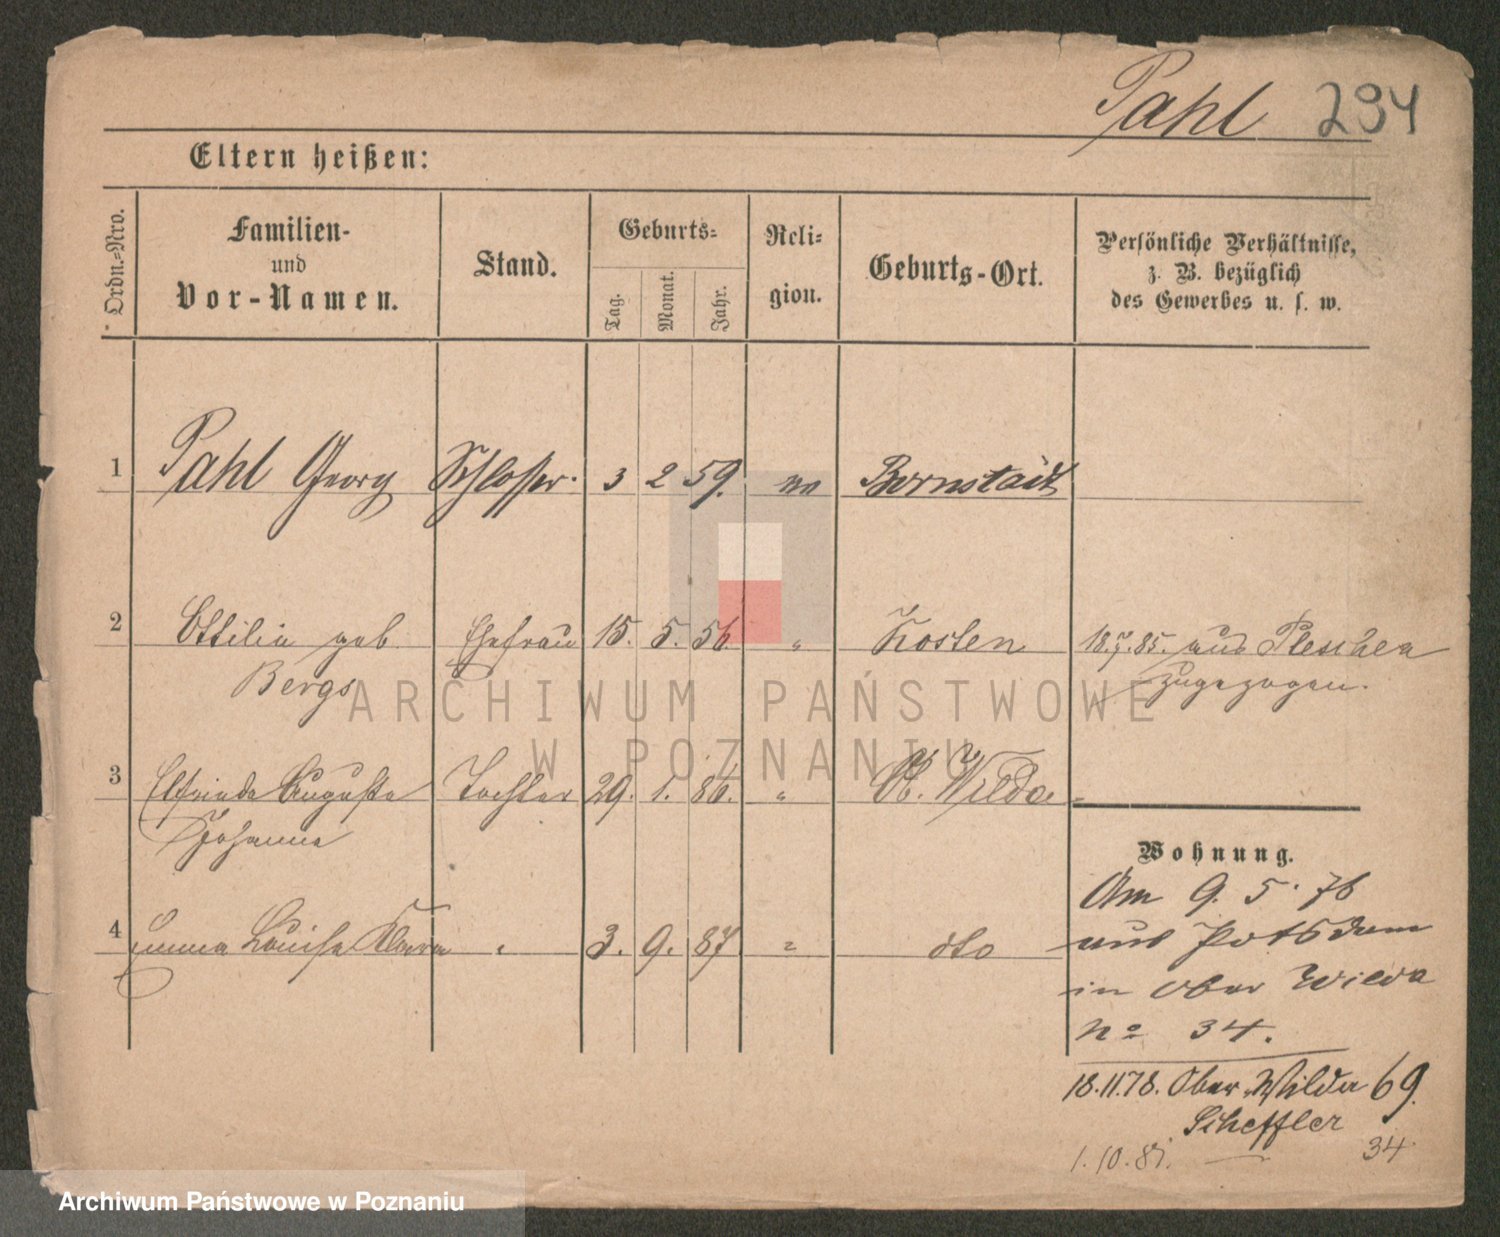 Pahl 294
Eltern heißen:
Ordn.-Nro.
Familien-
und
Vor-Namen.
Stand.
Geburts-
Tag.
Monat.
Jahr.
Reli-
gion.
Geburts-Ort.
Persönliche Verhältnisse,
z. B. bezüglich
des Gewerbes u. s. w.
1 Pahl Georg Schlosser 3 2 59. Bornstädt
2 Ottilie geb. Ehefrau 15. 5. 56. " Kosten 18.7.85. aus Pleschen
Bergs zugezogen.
3 Elfriede Auguste Tochter 29. 1. 86. " Ob. Wilda
Johanna
4 Emma Louise Klara " 3. 9. 87 " dto
Wohnung.
Am 9. 5. 76
aus Potsdam
in Ober Wilda
No 34.
18.11.78. Ober Wilda 69.
Scheffler
1.10.81. — 34
ARCHIWUM PAŃSTWOWE
W POZNANIU
Archiwum Państwowe w Poznaniu